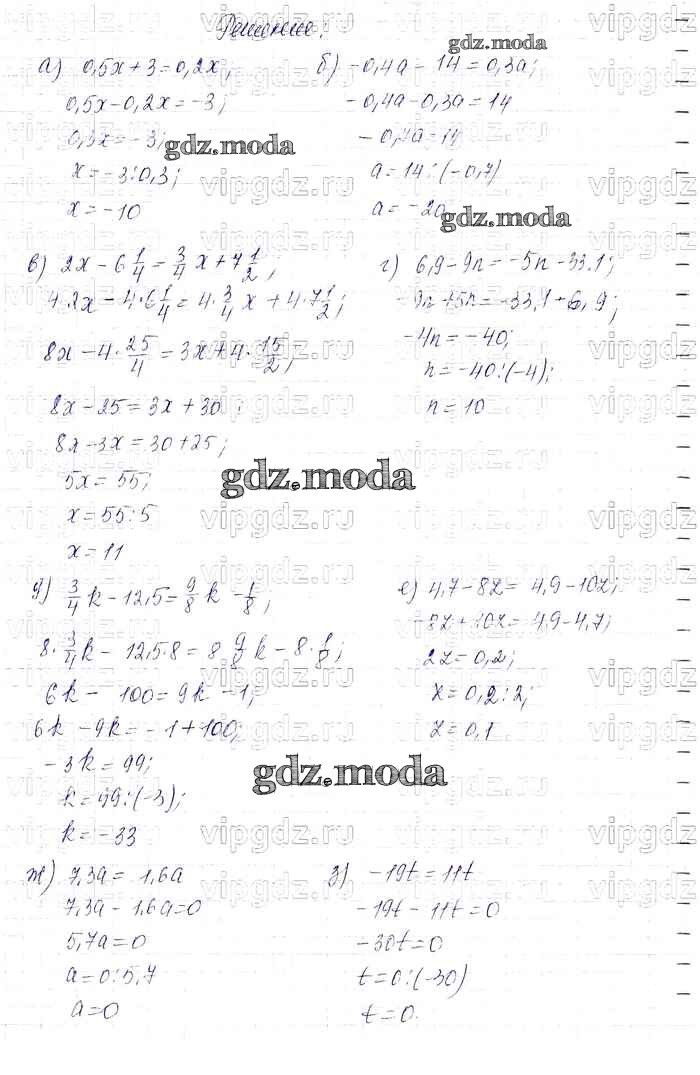 Решение:
а) 0,5x+3=0,2x;
0,5x-0,2x=-3;
0,3x=-3;
x=-3:0,3;
x=-10
б) -0,4a-14=0,3a;
-0,4a-0,3a=14
-0,7a=14
a=14:(-0,7)
a=-20
gdz.moda
gdz.moda
gdz.moda
в) 2x-6 1/4=3/4 x+7 1/2;
4·2x-4·6 1/4=4·3/4 x+4·7 1/2;
8x-4·25/4=3x+4·15/2;
8x-25=3x+30;
8x-3x=30+25;
5x=55;
x=55:5
x=11
г) 6,9-9n=-5n-33.1;
-9n+5n=-33,1-6,9;
-4n=-40;
n=-40:(-4);
n=10
gdz.moda
д) 3/4 k-12,5=9/8 k-1/8;
8·3/4 k-12,5·8=8 9/8 k-8·1/8;
6k-100=9k-1;
6k-9k=-1+100;
-3k=99;
k=99:(-3);
k=-33
е) 4,7-8z=4,9-10z;
-8z+10z=4,9-4,7;
2z=0,2;
z=0,2:2;
z=0,1
gdz.moda
ж) 7,3a=1,6a
7,3a-1,6a=0
5,7a=0
a=0:5,7
a=0
з) -19t=11t
-19t-11t=0
-30t=0
t=0:(-30)
t=0.
vipgdz.ru